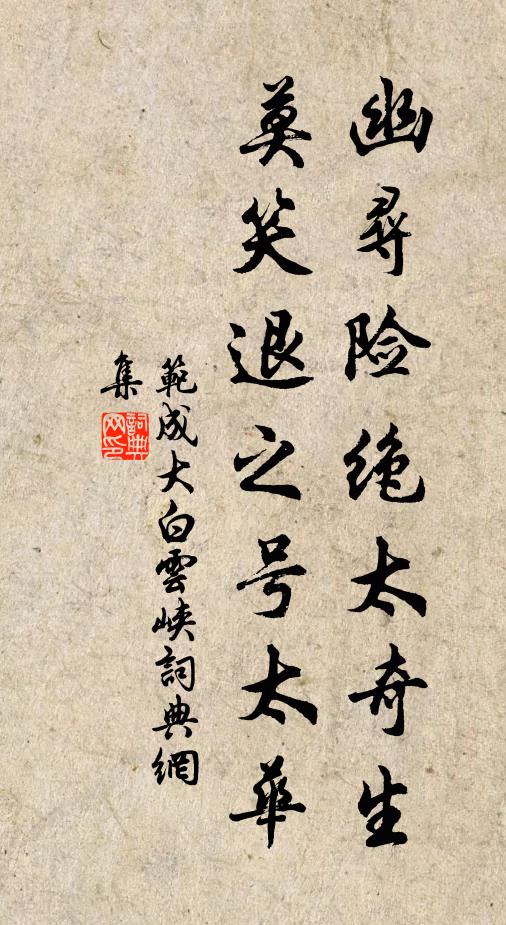 幽尋险绝太奇生
莫笑退之号太華
範成大白雲峡詞典網
集
詞典
网印